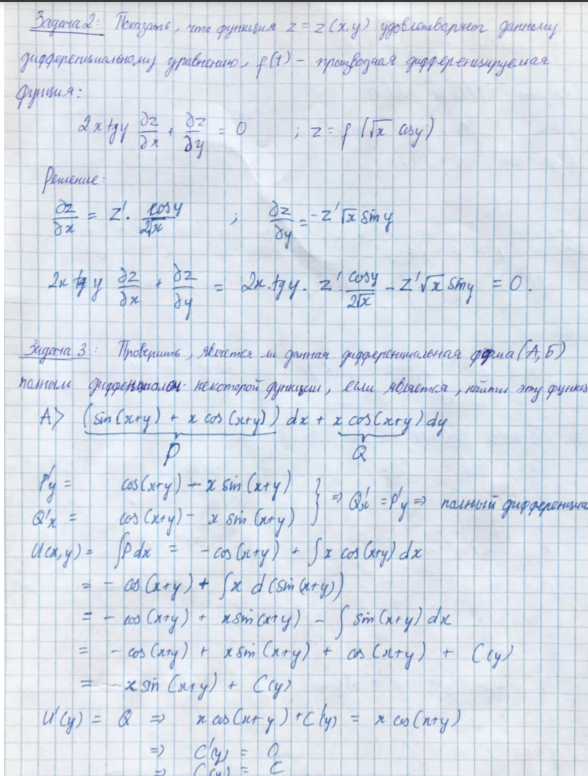 Задача 2: Показать, что функция z = z(x,y) удовлетворяет данному
дифференциальному уравнению, f(t) - произвольная дифференцируемая
функция:
2x tgy ∂z/∂x + ∂z/∂y = 0 ; z = f(√x cosy)
Решение:
∂z/∂x = z' · cosy/2√x ; ∂z/∂y = -z'√x siny
2x tgy ∂z/∂x + ∂z/∂y = 2x·tgy· z' cosy/2√x - z'√x siny = 0.
Задача 3: Проверить, является ли данная дифференциальная форма (А, Б)
полным дифференциалом некоторой функции, если является, найти эту функц
А> (sin(x+y) + x cos(x+y)) dx + x cos(x+y) dy
P Q
P'y = cos(x+y) - x sin(x+y) } ⇒ Q'x = P'y ⇒ полный дифференциа
Q'x = cos(x+y) - x sin(x+y)
U(x,y) = ∫Pdx = -cos(x+y) + ∫x cos(x+y) dx
= - cos(x+y) + ∫x d(sin(x+y))
= - cos(x+y) + x sin(x+y) - ∫sin(x+y) dx
= - cos(x+y) + x sin(x+y) + cos(x+y) + C(y)
= x sin(x+y) + C(y)
U'(y) = Q ⇒ x cos(x+y) + C'(y) = x cos(x+y)
⇒ C'(y) = 0
⇒ C(y) = C